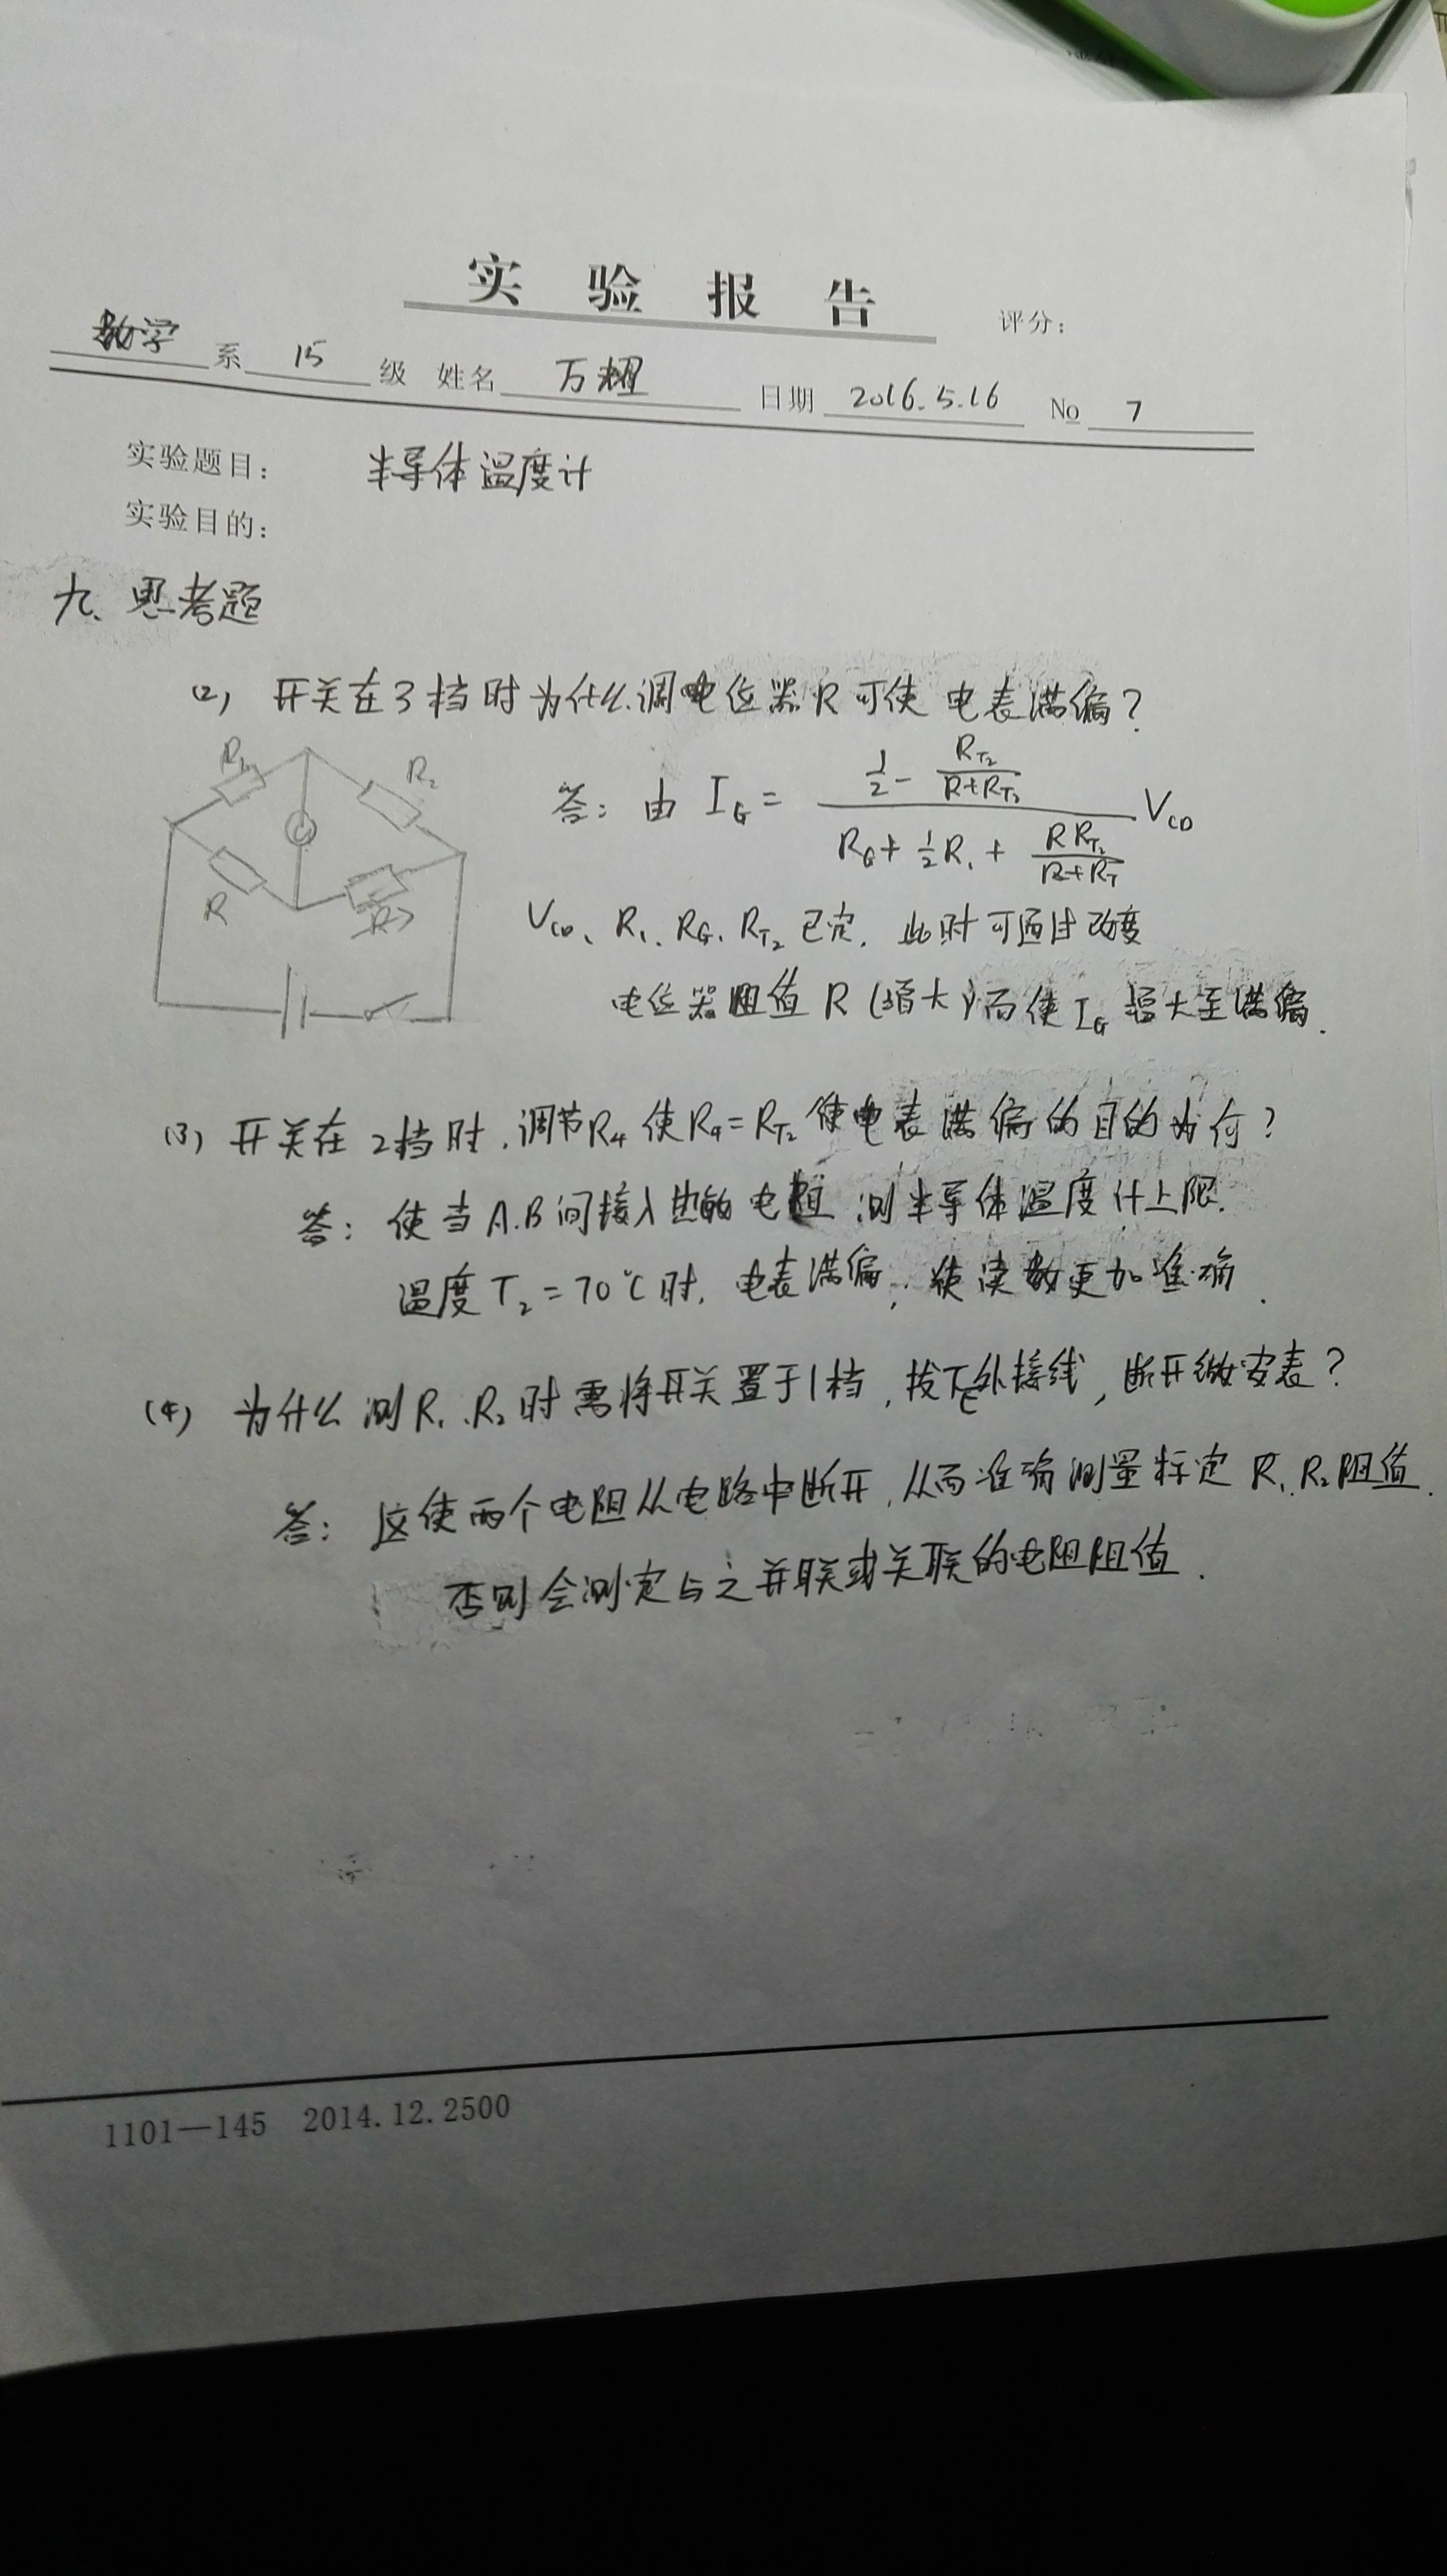 实验报告
评分：
数学 系 15 级 姓名 万 日期 2016.5.16 No 7
实验题目： 半导体温度计
实验目的：
九、思考题
(2) 开关在3档时为什么调电位器R可使电表满偏？
R1 R2
R
答：由 I_G = \frac{\frac{1}{2} - \frac{R_{T_2}}{R+R_{T_2}}}{R_G + \frac{1}{2}R_1 + \frac{R R_{T_2}}{R+R_T}} V_{CD}
V_{CD}、R_1、R_G、R_{T_2} 已定，此时可通过改变
电位器阻值R(增大)而使I_G增大至满偏.
(3) 开关在2档时，调节R4使R4=R_{T_2}使电表满偏的目的为何？
答：使当A.B间接入热敏电阻测半导体温度计上限.
温度T_2=70℃时，电表满偏，使读数更加准确.
(4) 为什么测R1、R2时需将开关置于1档，拔下E外接线，断开微安表？
答：这使两个电阻从电路中断开，从而准确测量标定R1、R2阻值.
否则会测定与之并联或关联的电阻阻值.
1101—145 2014.12.2500